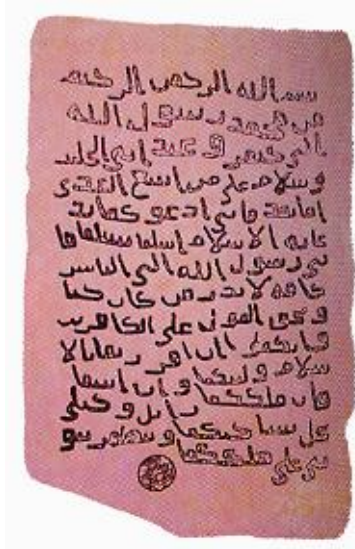 بسم الله الرحمن الرحيم
من محمد رسول الله
الى جيفر و عبد ابني الجلند
وسلام على من اتبع الهدى
اما بعد فاني ادعوكما بد
عايه الاسلام اسلما تسلما فا
ني رسول الله الى الناس
كافه لانذر من كان حيا
و يحق القول على الكافرين
فانكما ان اقررتما بالا
سلام وليتكما و ان ابيتما
فان ملككما زايل و خيلي
تحل بساحتكما و تظهر نبو
تي على ملككما